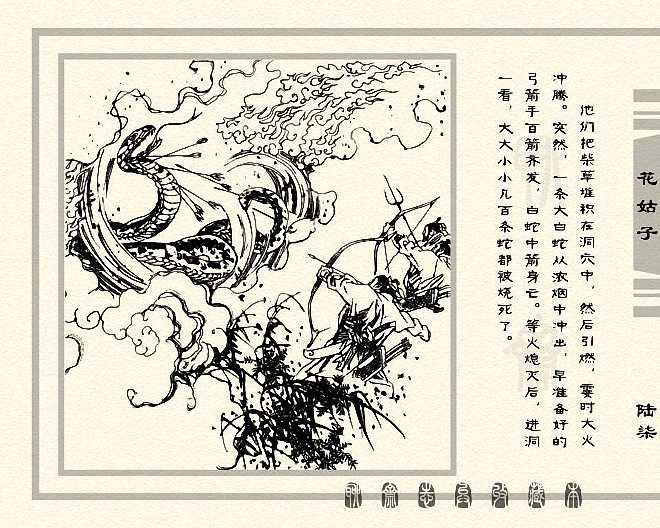 他们把柴草堆积在洞穴中，然后引燃，霎时大火
冲腾。突然，一条大白蛇从浓烟中冲出，早准备好的
弓箭手百箭齐发，白蛇中箭身亡。等火熄灭后，进洞
一看，大大小小几百条蛇都被烧死了。
花姑子
陆柒